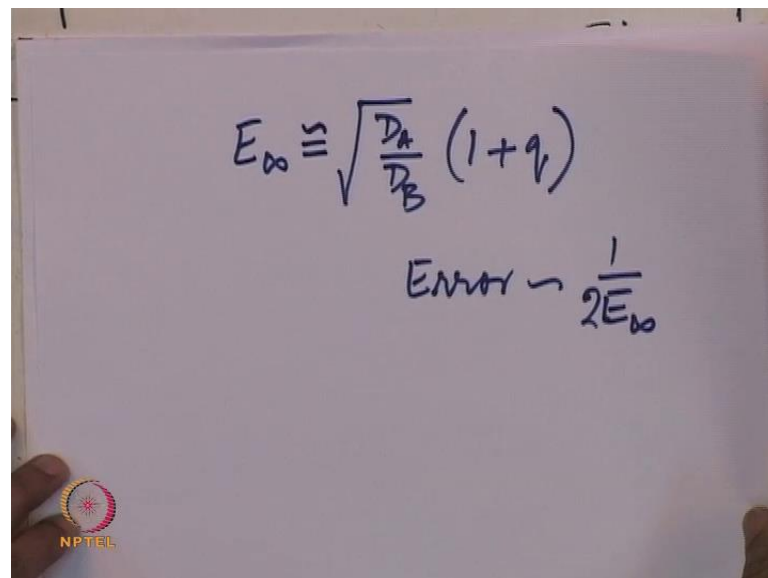 E∞ ≅ √(D_A/D_B) (1+q)
Error ~ 1/(2E∞)
NPTEL